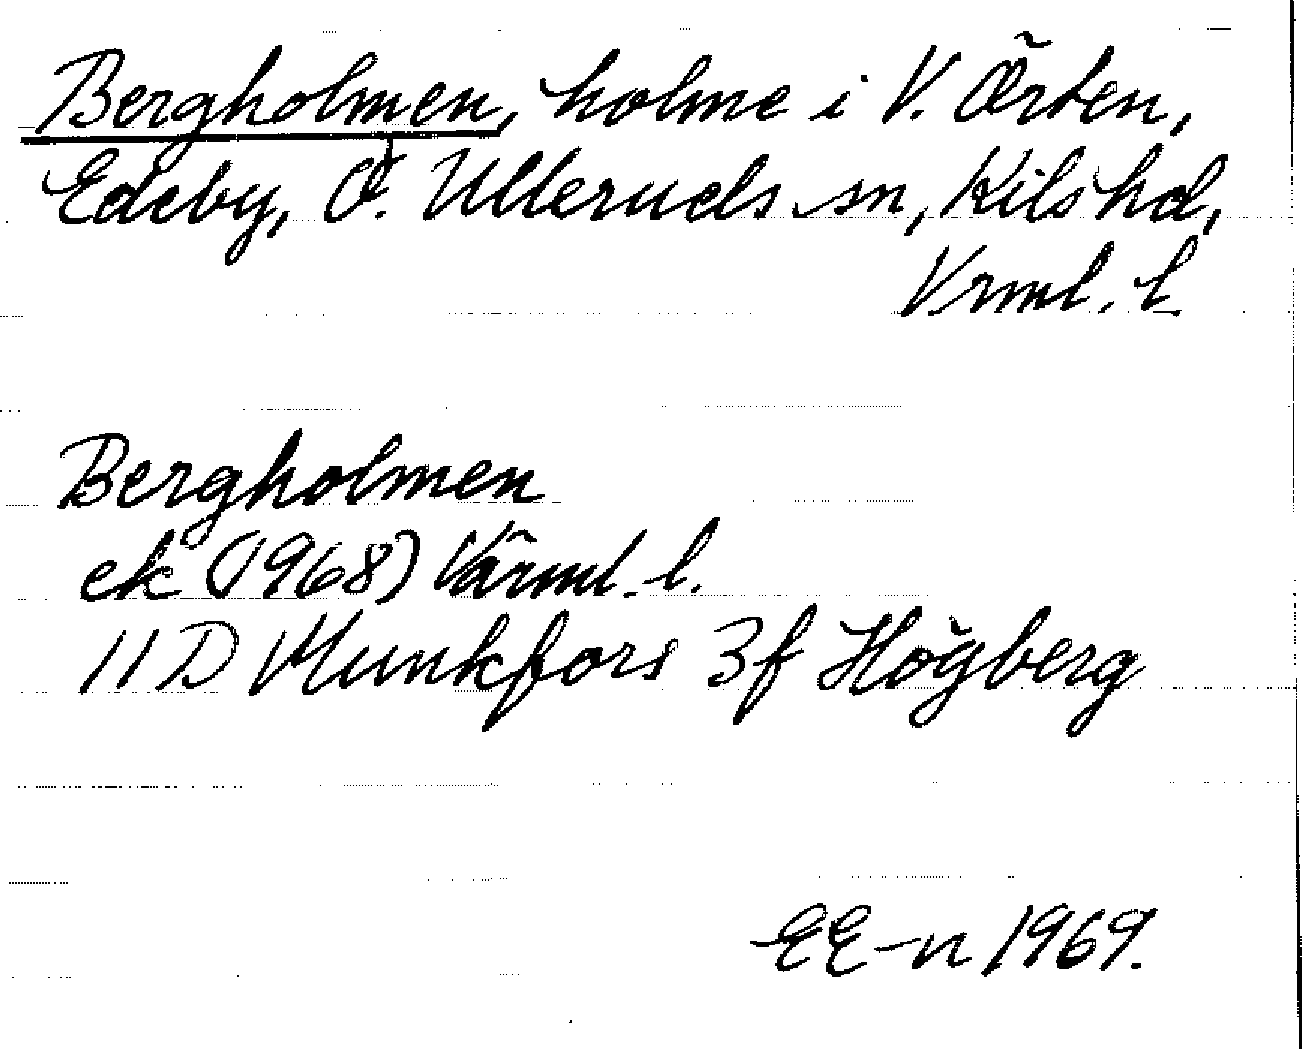 Bergholmen, holme i V. Örten,
Edeby, Ö. Ulleruds sn, Kils hd,
Vrml. l.
Bergholmen
ek (1968) Värml. l.
11 D Munkfors 3f Högberg
EE-n 1969.